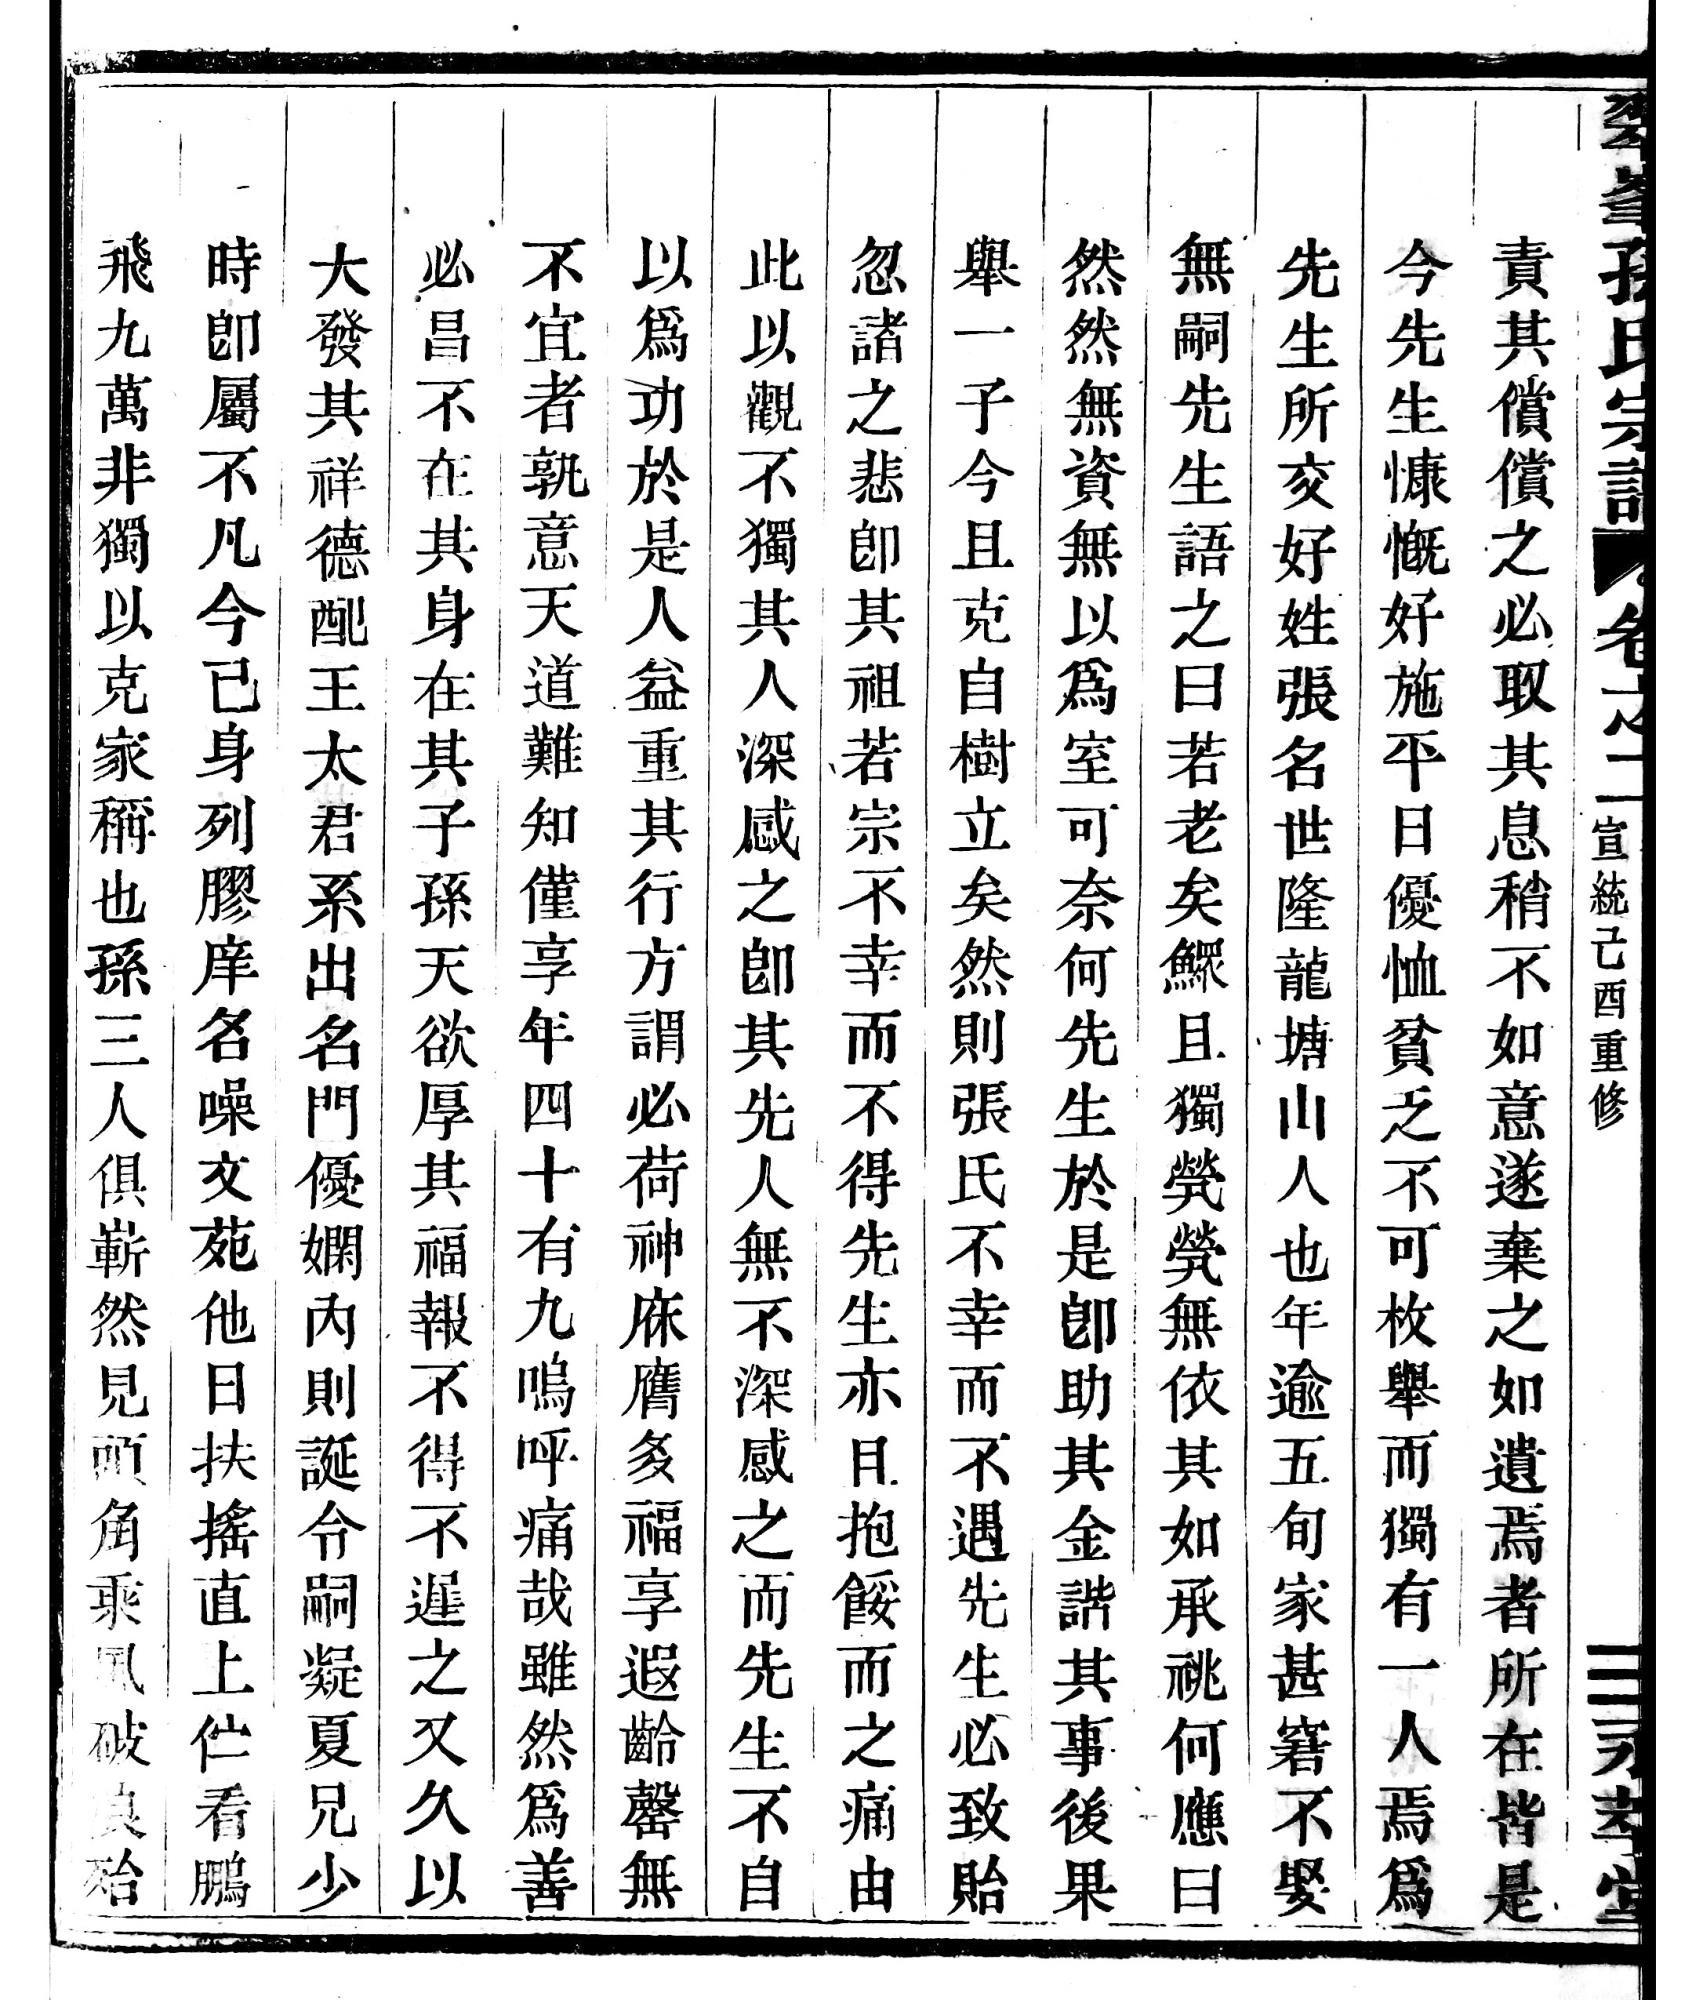 孫氏宗譜 卷之二 宣統己酉重修 三 永孝堂
責其償償之必取其息稍不如意遂棄之如遺焉者所在皆是
今先生慷慨好施平日優恤貧乏不可枚舉而獨有一人焉爲
先生所交好姓張名世隆龍塘山人也年逾五旬家甚窘不娶
無嗣先生語之曰若老矣鰥且獨煢煢無依其如承祧何應曰
然然無資無以爲室可奈何先生於是卽助其金諧其事後果
舉一子今且克自樹立矣然則張氏不幸而不遇先生必致貽
忽諸之悲卽其祖若宗不幸而不得先生亦且抱餒而之痛由
此以觀不獨其人深感之卽其先人無不深感之而先生不自
以爲功於是人益重其行方謂必荷神庥膺多福享遐齡罄無
不宜者孰意天道難知僅享年四十有九嗚呼痛哉雖然爲善
必昌不在其身在其子孫天欲厚其福報不得不遲之又久以
大發其祥德配王太君系出名門優嫻內則誕令嗣凝夏兄少
時卽屬不凡今已身列膠庠名噪文苑他日扶搖直上伫看鵬
飛九萬非獨以克家稱也孫三人俱嶄然見頭角乘風破浪殆